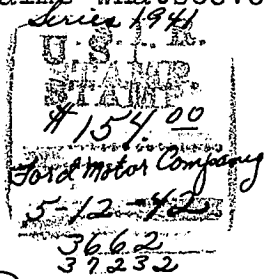 Series 1941
U.S.I.R.
STAMP.
STAMP
$154.00
Ford Motor Company
5-12-42
3662
37232